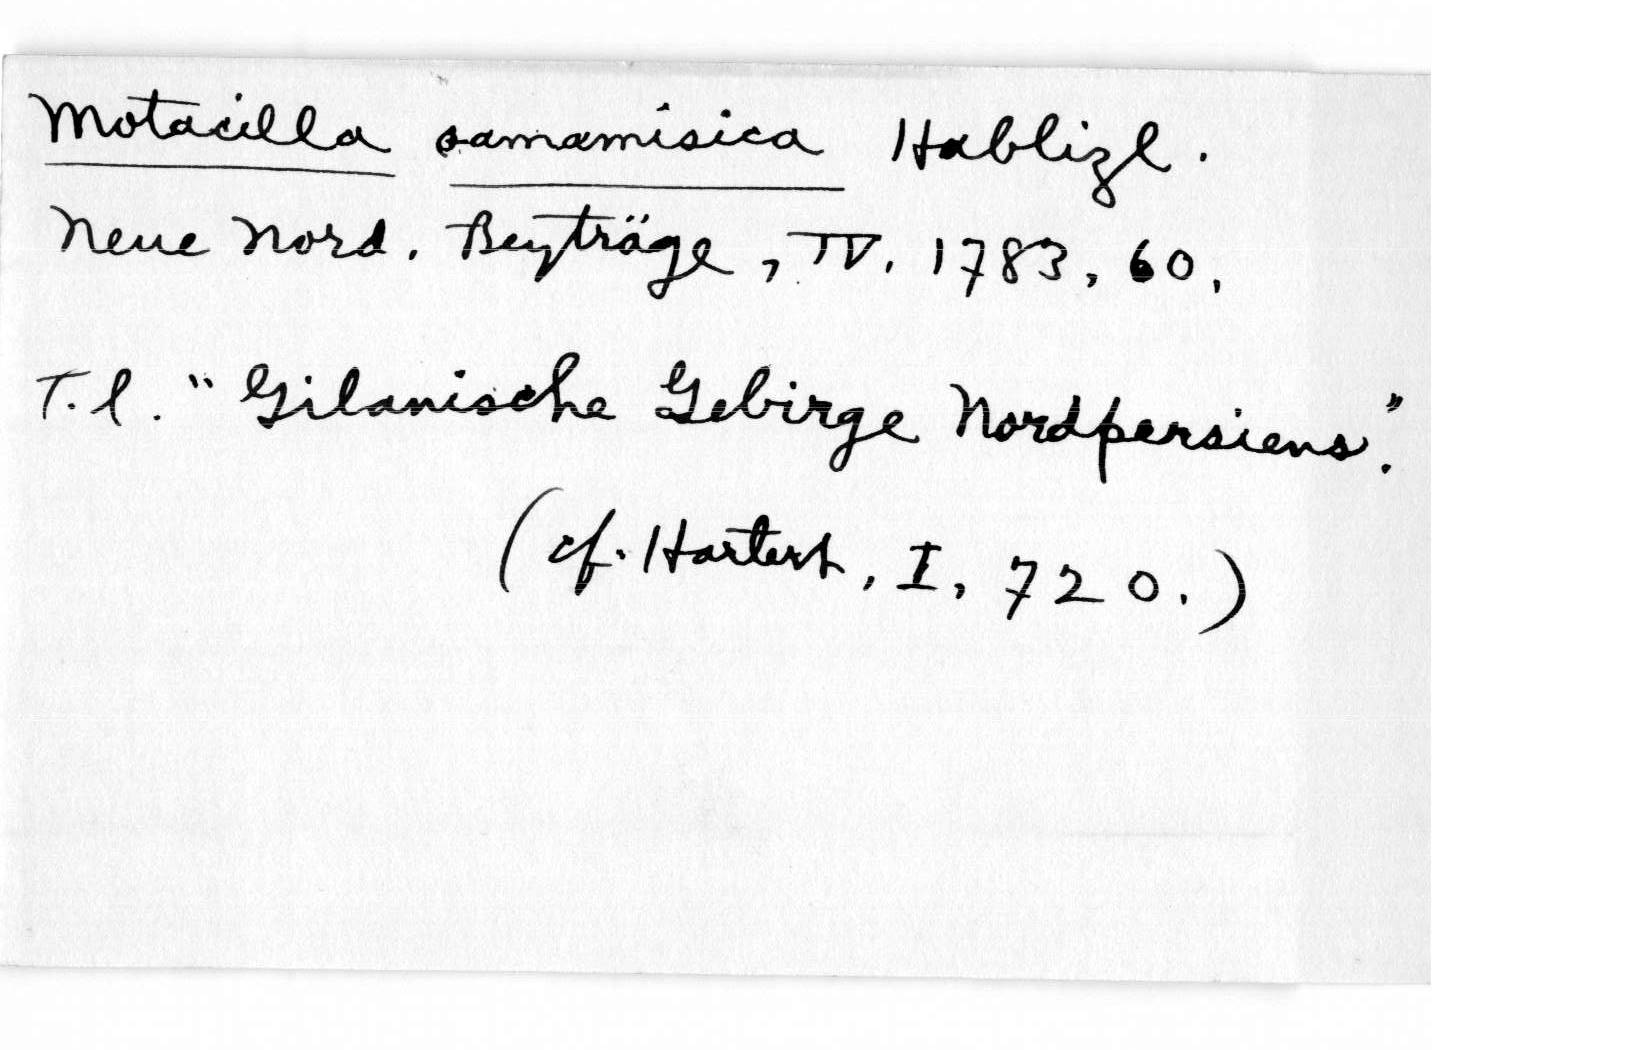 Motacilla samamisica Hablizl.
Neue Nord. Beyträge, IV. 1783, 60,
T. l. "Gilanische Gebirge Nordpersiens".
(cf. Hartert, I, 720.)